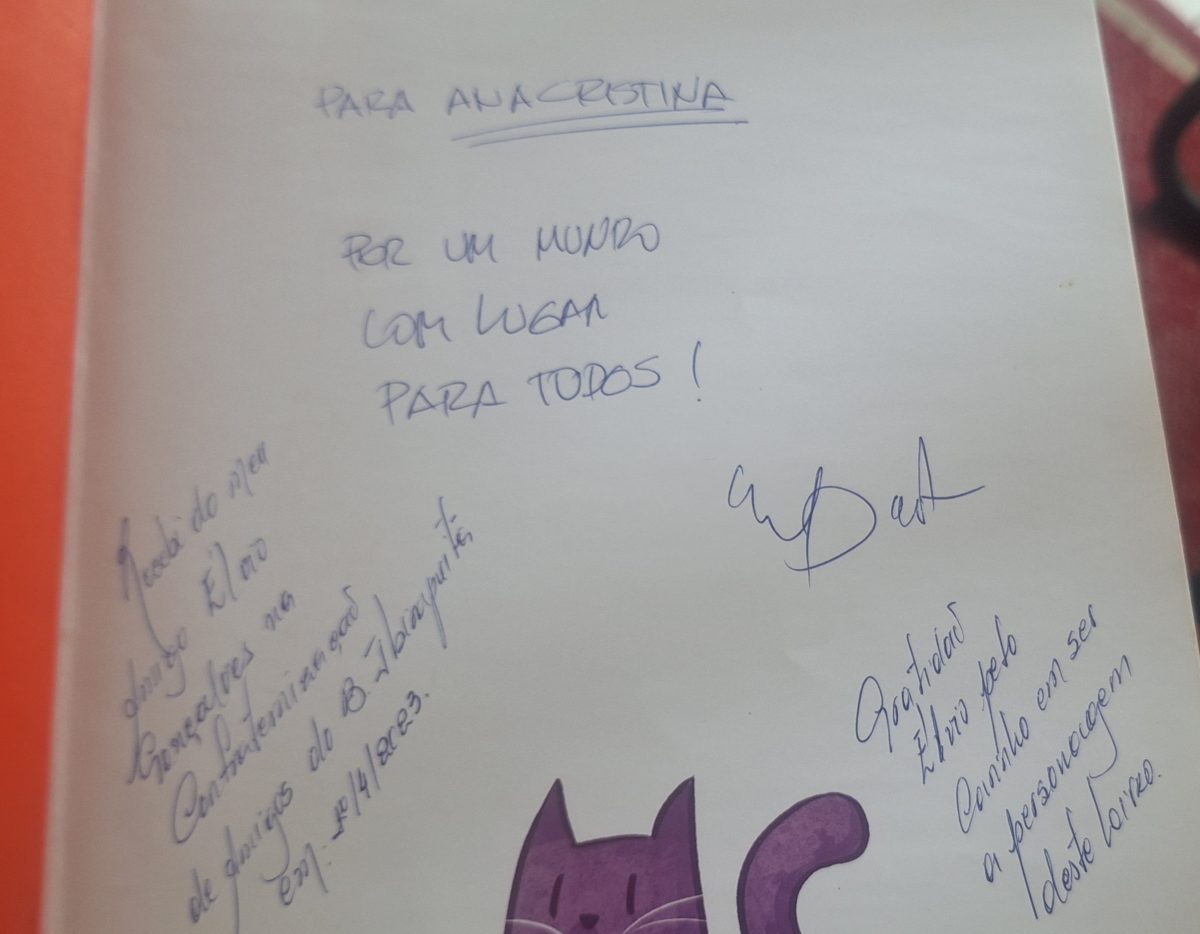 PARA ANA CRISTINA
POR UM MUNDO
COM LUGAR
PARA TODOS!
Recebi do meu
amigo Élvio
Gonçalves na
Confraternização
de amigos do B. Ibirapuitã
em:
/4/2023.
Gratidão
Élvio pelo
Carinho em ser
a personagem
deste Livro.